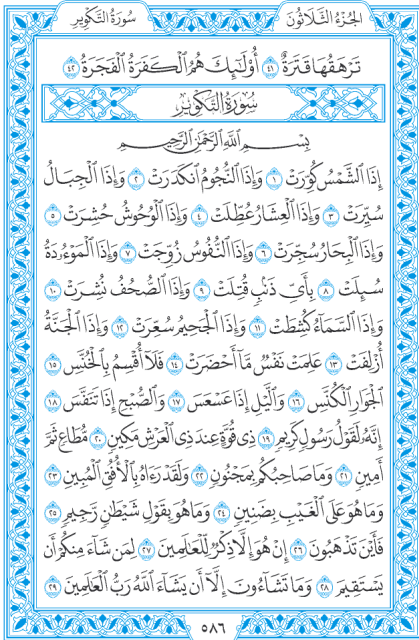 الجُزْءُ الثَّلَاثُونَ
سُورَةُ التَّكْوِيرِ
تَرْهَقُهَا قَتَرَةٌ ٤١ أُوْلَٰٓئِكَ هُمُ ٱلْكَفَرَةُ ٱلْفَجَرَةُ ٤٢
سُورَةُ التَّكْوِيرِ
بِسْمِ ٱللَّهِ ٱلرَّحْمَٰنِ ٱلرَّحِيمِ
إِذَا ٱلشَّمْسُ كُوِّرَتْ ١ وَإِذَا ٱلنُّجُومُ ٱنكَدَرَتْ ٢ وَإِذَا ٱلْجِبَالُ
سُيِّرَتْ ٣ وَإِذَا ٱلْعِشَارُ عُطِّلَتْ ٤ وَإِذَا ٱلْوُحُوشُ حُشِرَتْ ٥
وَإِذَا ٱلْبِحَارُ سُجِّرَتْ ٦ وَإِذَا ٱلنُّفُوسُ زُوِّجَتْ ٧ وَإِذَا ٱلْمَوْءُۥدَةُ
سُئِلَتْ ٨ بِأَيِّ ذَنۢبٍ قُتِلَتْ ٩ وَإِذَا ٱلصُّحُفُ نُشِرَتْ ١٠
وَإِذَا ٱلسَّمَآءُ كُشِطَتْ ١١ وَإِذَا ٱلْجَحِيمُ سُعِّرَتْ ١٢ وَإِذَا ٱلْجَنَّةُ
أُزْلِفَتْ ١٣ عَلِمَتْ نَفْسٌ مَّآ أَحْضَرَتْ ١٤ فَلَآ أُقْسِمُ بِٱلْخُنَّسِ ١٥
ٱلْجَوَارِ ٱلْكُنَّسِ ١٦ وَٱلَّيْلِ إِذَا عَسْعَسَ ١٧ وَٱلصُّبْحِ إِذَا تَنَفَّسَ ١٨
إِنَّهُۥ لَقَوْلُ رَسُولٍ كَرِيمٍ ١٩ ذِي قُوَّةٍ عِندَ ذِي ٱلْعَرْشِ مَكِينٍ ٢٠ مُّطَاعٍ ثَمَّ
أَمِينٍ ٢١ وَمَا صَاحِبُكُم بِمَجْنُونٍ ٢٢ وَلَقَدْ رَءَاهُ بِٱلْأُفُقِ ٱلْمُبِينِ ٢٣
وَمَا هُوَ عَلَى ٱلْغَيْبِ بِضَنِينٍ ٢٤ وَمَا هُوَ بِقَوْلِ شَيْطَٰنٍ رَّجِيمٍ ٢٥
فَأَيْنَ تَذْهَبُونَ ٢٦ إِنْ هُوَ إِلَّا ذِكْرٌ لِّلْعَٰلَمِينَ ٢٧ لِمَن شَآءَ مِنكُمْ أَن
يَسْتَقِيمَ ٢٨ وَمَا تَشَآءُونَ إِلَّآ أَن يَشَآءَ ٱللَّهُ رَبُّ ٱلْعَٰلَمِينَ ٢٩
٥٨٦